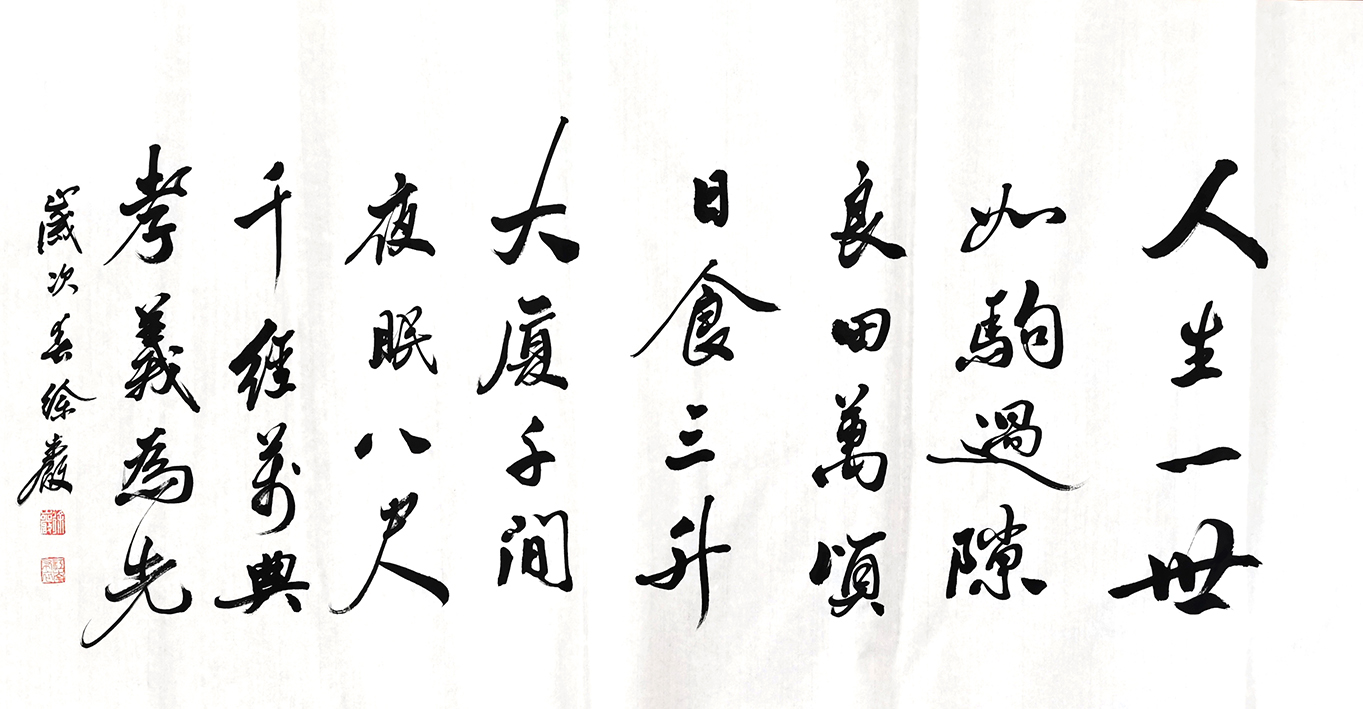 人生一世
如駒過隙
良田萬頃
日食三升
大廈千間
夜眠八尺
千經萬典
孝義為先
歲次春徐嚴